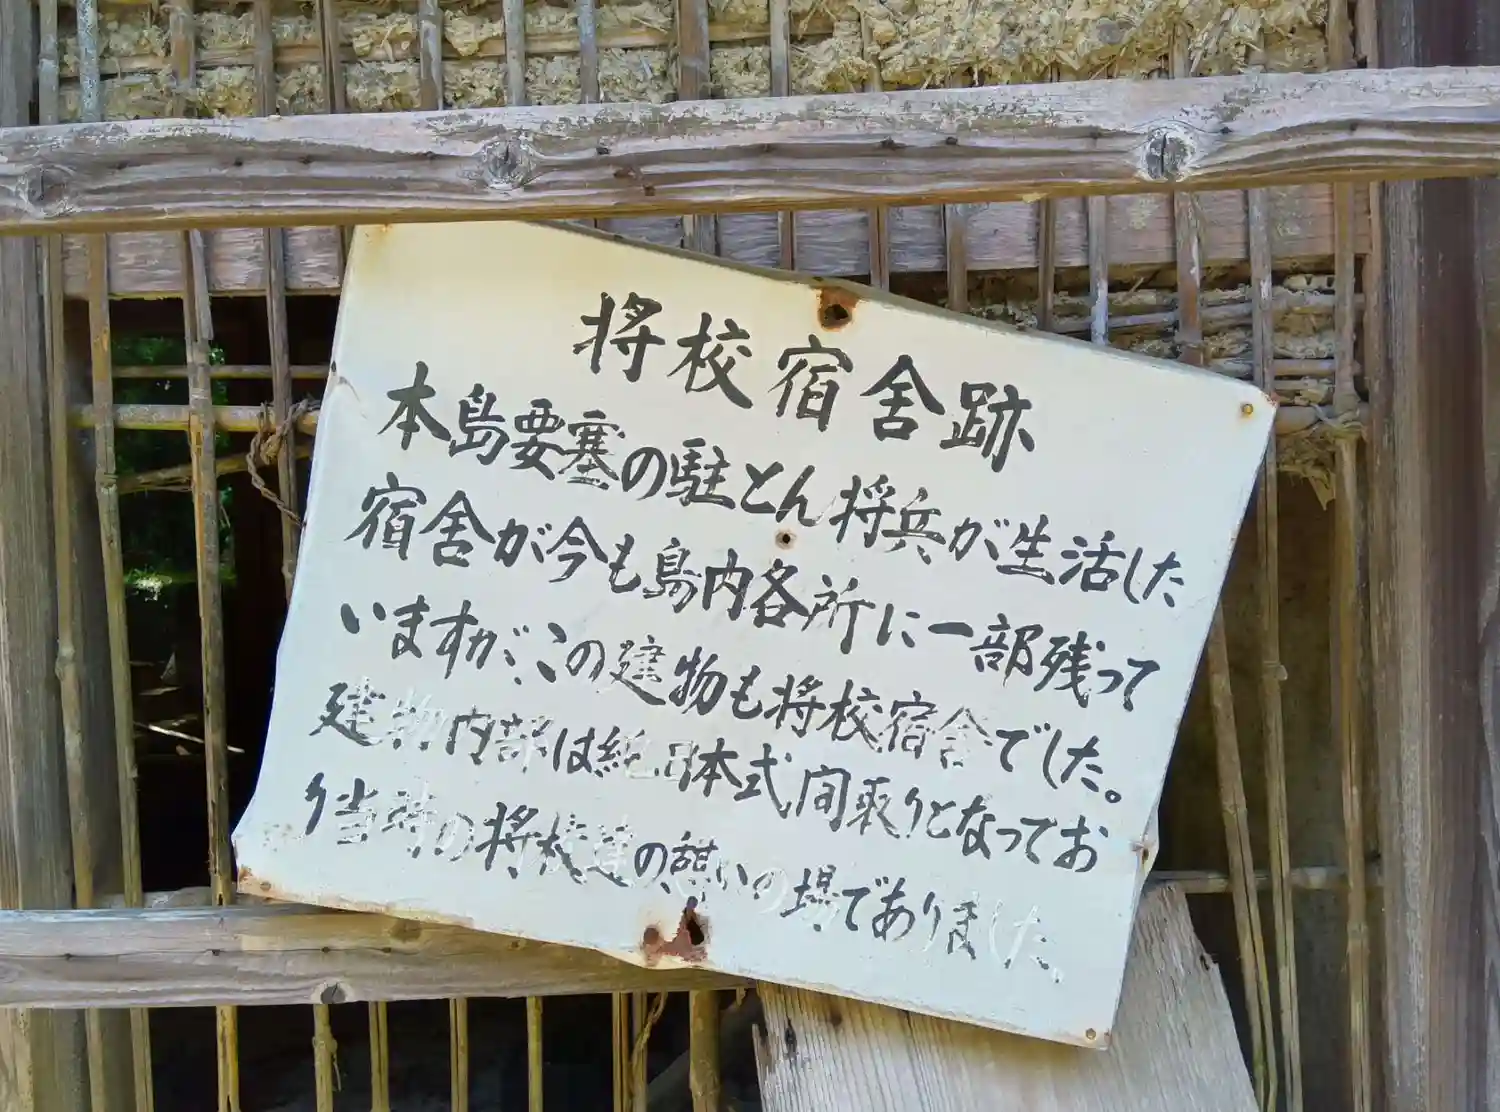 将校宿舍跡
本島要塞の駐とん将兵が生活した
宿舍が今も島内各所に一部残って
いますが、この建物も将校宿舍でした。
建物内部は純日本式間取りとなってお
り当時の将校達の憩いの場でありました。